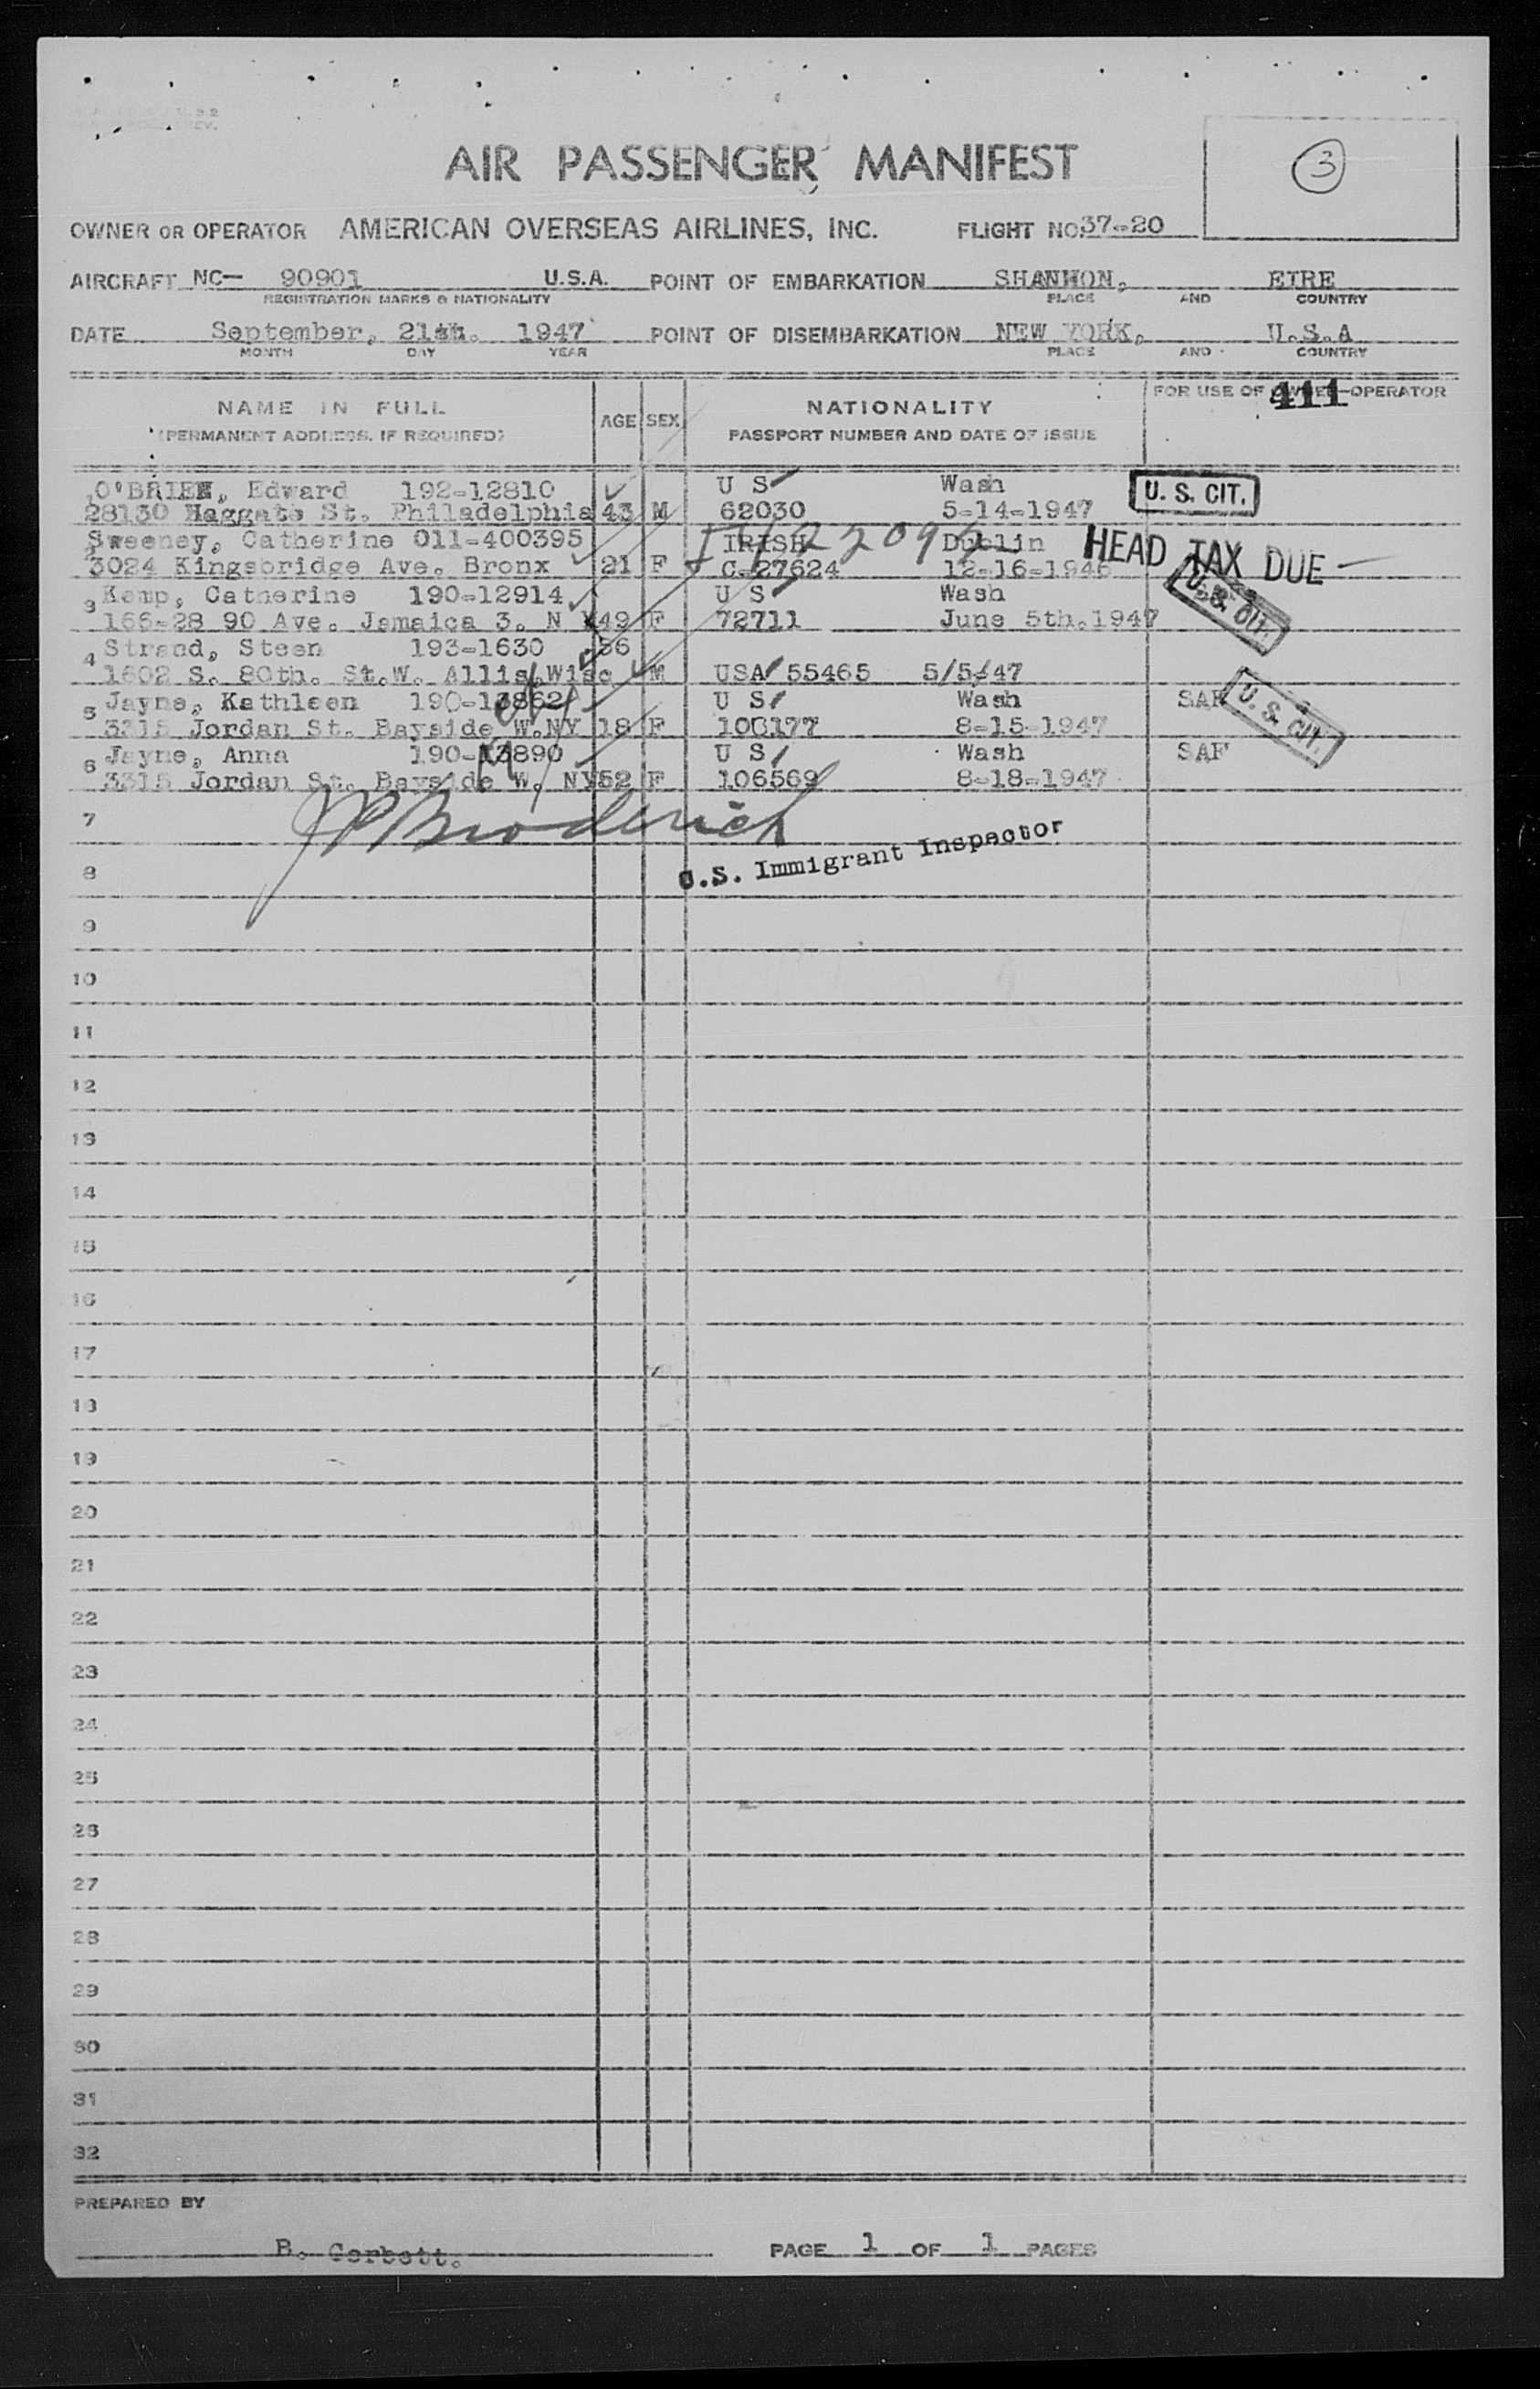 AIR PASSENGER MANIFEST
3
OWNER OR OPERATOR AMERICAN OVERSEAS AIRLINES, INC. FLIGHT NO. 37-20
AIRCRAFT NC- 90901 U.S.A. POINT OF EMBARKATION SHANNON, EIRE
REGISTRATION MARKS & NATIONALITY PLACE AND COUNTRY
DATE September, 21st. 1947 POINT OF DISEMBARKATION NEW YORK, U.S.A
MONTH DAY YEAR PLACE AND COUNTRY
NAME IN FULL AGE SEX NATIONALITY FOR USE OF OWNER-OPERATOR
411
(PERMANENT ADDRESS, IF REQUIRED) PASSPORT NUMBER AND DATE OF ISSUE
O'BRIEN, Edward 192-12810 U S Wash U. S. CIT.
28130 Haggate St. Philadelphia 43 M 62030 5-14-1947
Sweeney, Catherine 011-400395 IRISH Dublin HEAD TAX DUE
3024 Kingsbridge Ave. Bronx 21 F C-27624 12-16-1946
3 Kemp, Catherine 190-12914 U S Wash U. S. CIT.
166-28 90 Ave. Jamaica 3. N Y 49 F 72711 June 5th. 1947
4 Strand, Steen 193-1630 56
1602 S. 80th. St. W. Allis, Wisc M USA 55465 5/5/47
5 Jayne, Kathleen 190-13862 U S Wash SAF U. S. CIT.
3315 Jordan St. Bayside W. NY 18 F 100177 8-15-1947
6 Jayne, Anna 190-13890 U S Wash SAF
3315 Jordan St. Bayside W. NY 52 F 106569 8-18-1947
7 JP Broderick
8 U.S. Immigrant Inspector
9
10
11
12
13
14
15
16
17
18
19
20
21
22
23
24
25
26
27
28
29
30
31
32
PREPARED BY
B. Corbett. PAGE 1 OF 1 PAGES